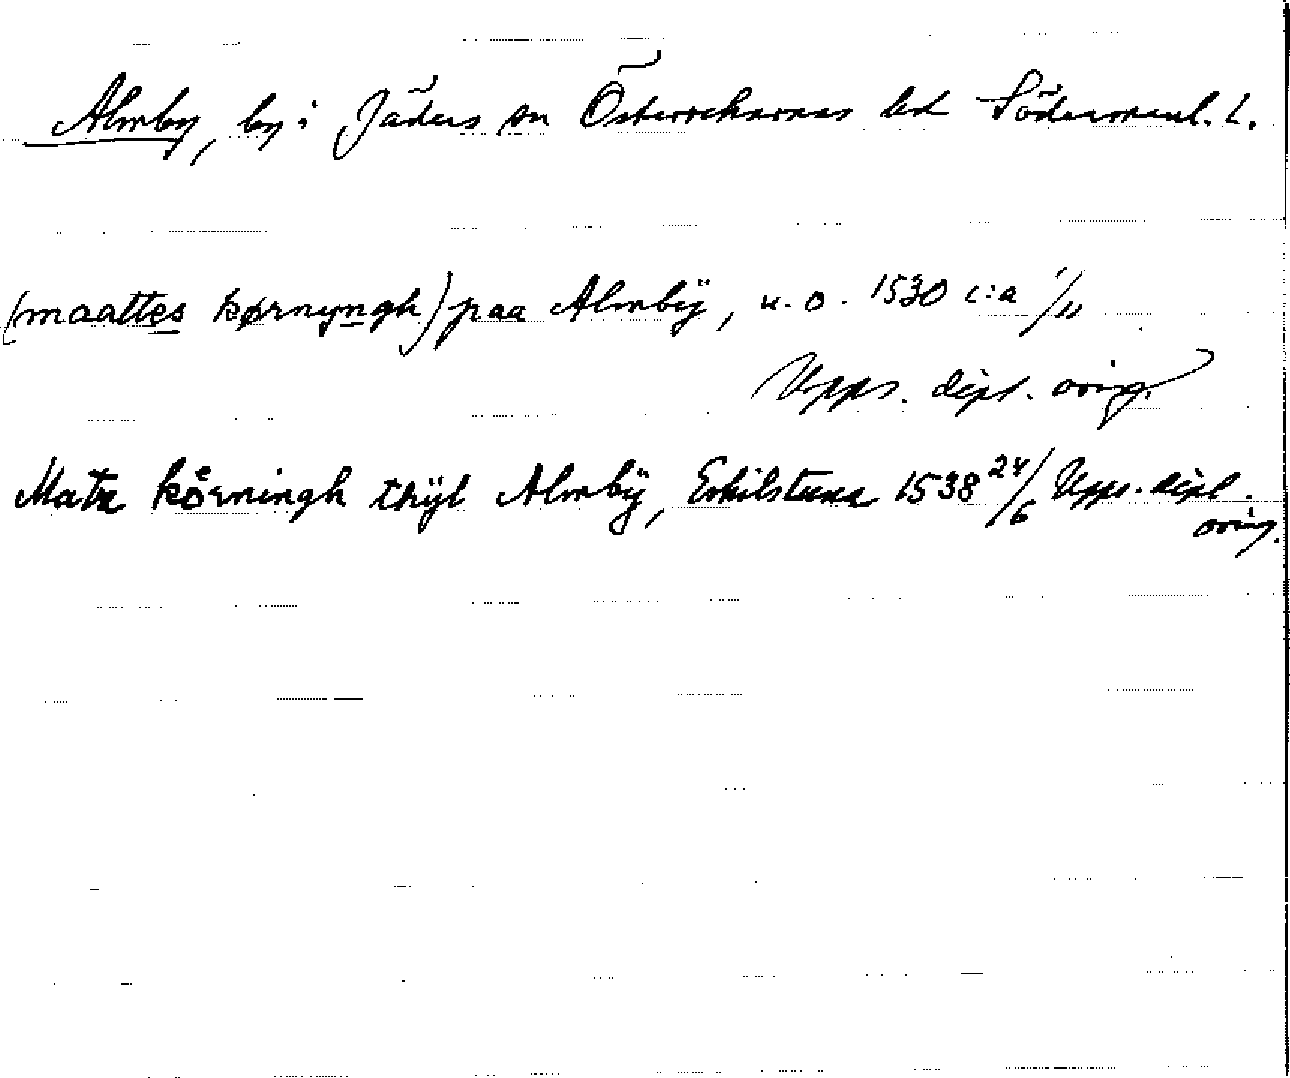 Almby, by i Jäders sn Österrekarnes hd Södermanl. L.
(maattes kørnyngh) paa Almbÿ, u. o. 1530 c:a 1/11
Upps. dipl. orig.
Matz körningh thÿl Almbÿ, Eskilstuna 1538 24/6 Upps. dipl.
orig.